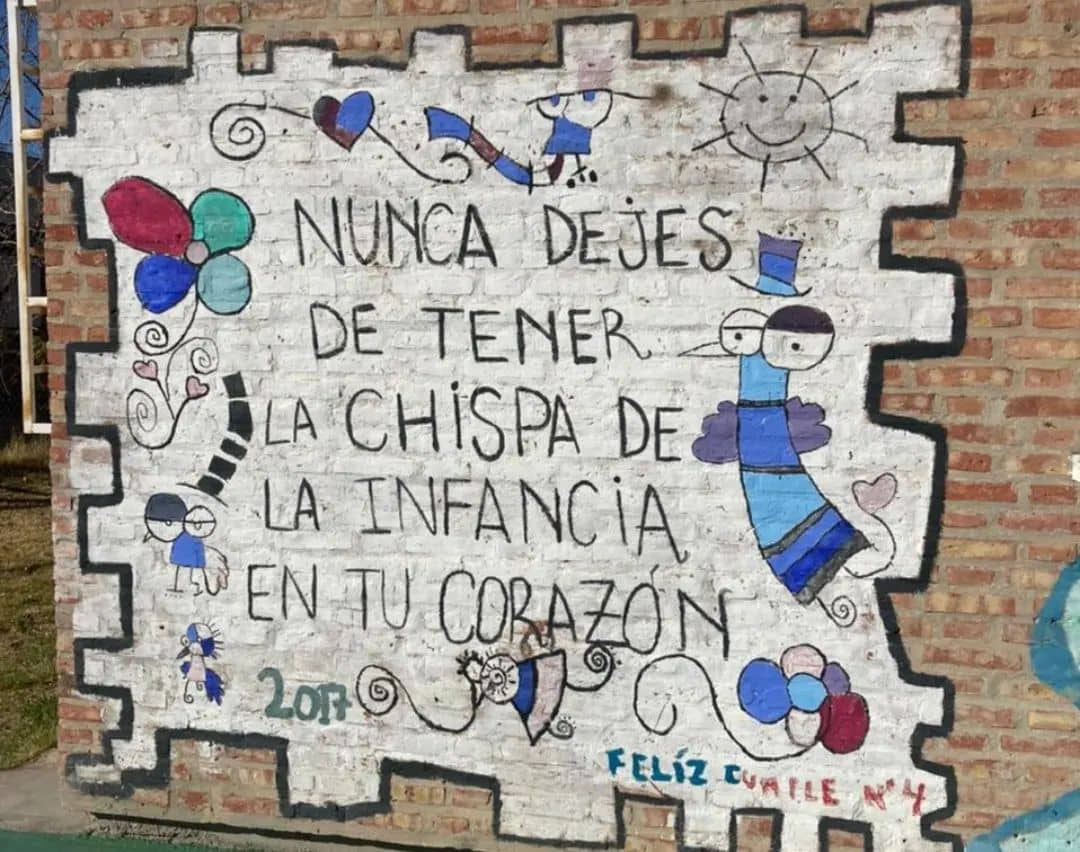 NUNCA DEJES
DE TENER
LA CHISPA DE
LA INFANCIA
EN TU CORAZÓN
2017
FELÍZ CUMLE N°4